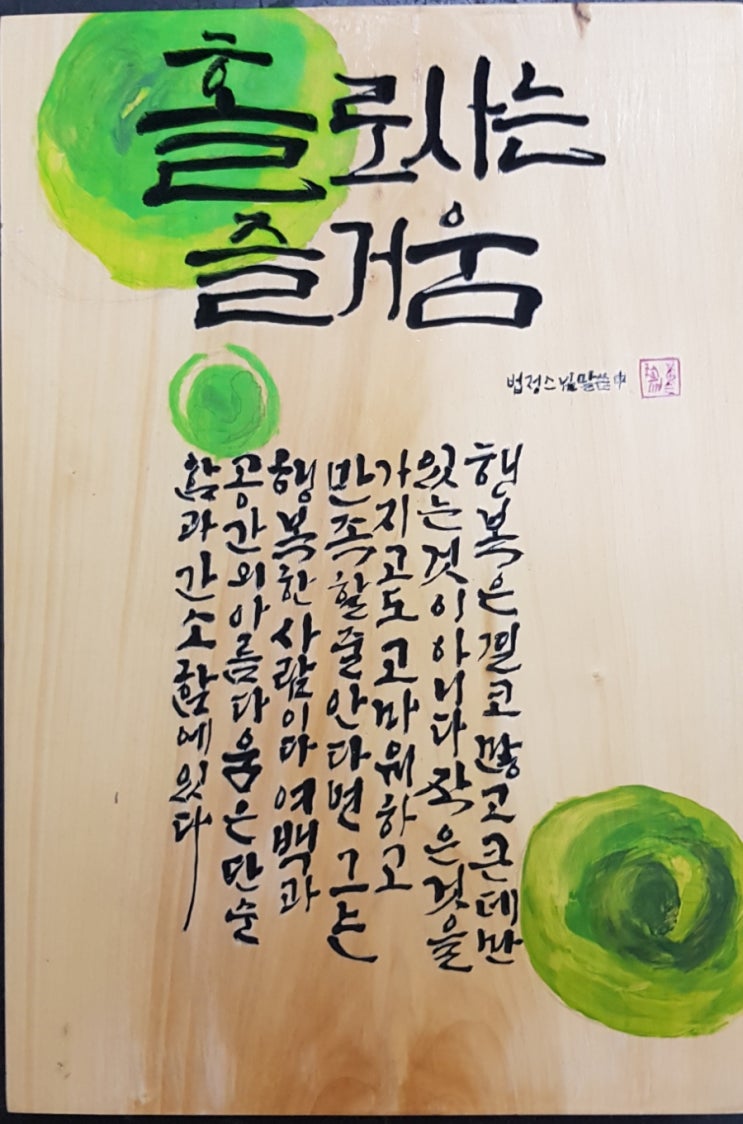 홀로사는
즐거움
법정스님말씀中
행복은결코많고큰데만
있는것이아니다작은것을
가지고도고마워하고
만족할줄안다면그는
행복한사람이다여백과
공간의아름다움은단순
함과간소함에있다